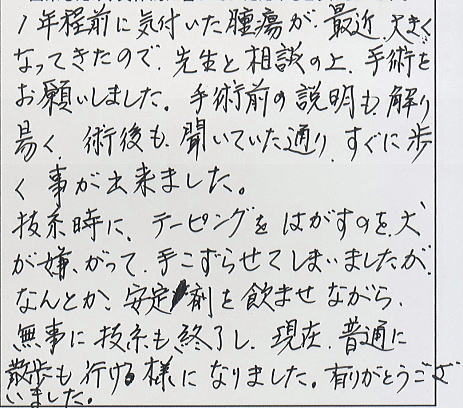 1年程前に気付いた腫瘍が、最近、大きく
なってきたので、先生と相談の上、手術を
お願いしました。手術前の説明も、解り
易く、術後も、聞いていた通り、すぐに歩
く事が出来ました。
抜糸時に、テーピングをはがすのを、犬
が嫌がって、手こずらせてしまいましたが、
なんとか、安定剤を飲ませながら、
無事に抜糸も終了し、現在、普通に
散歩も行ける様になりました。有りがとうござ
いました。